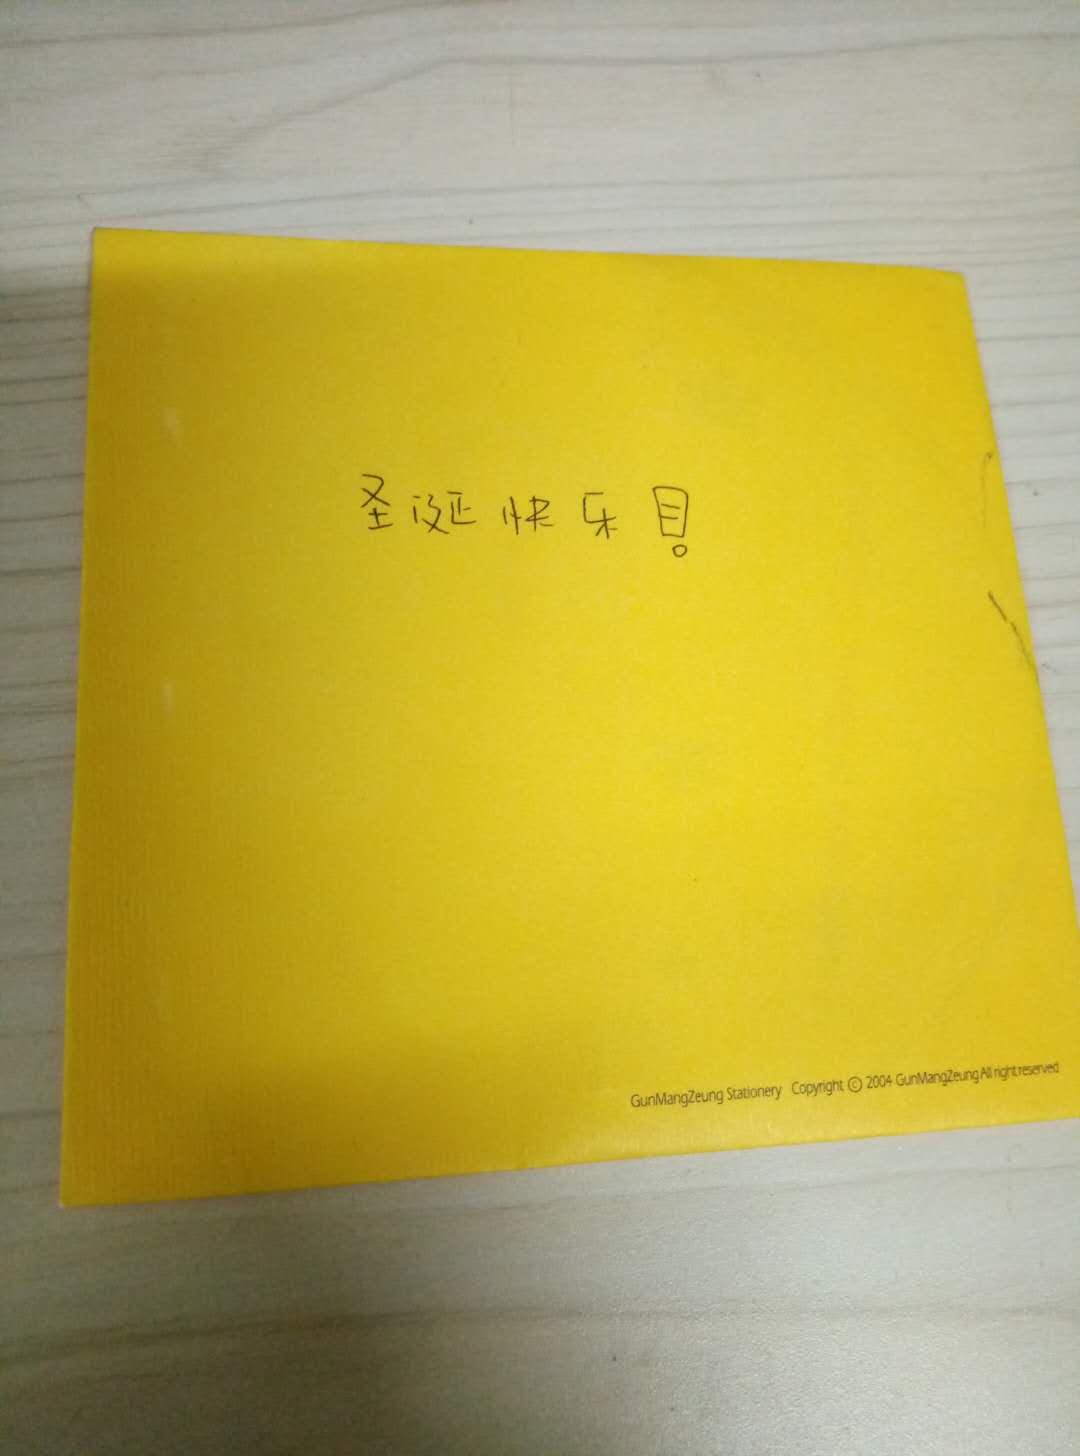 圣诞快乐！
GunMangZeung Stationery Copyright © 2004 GunMangZeung All right reserved